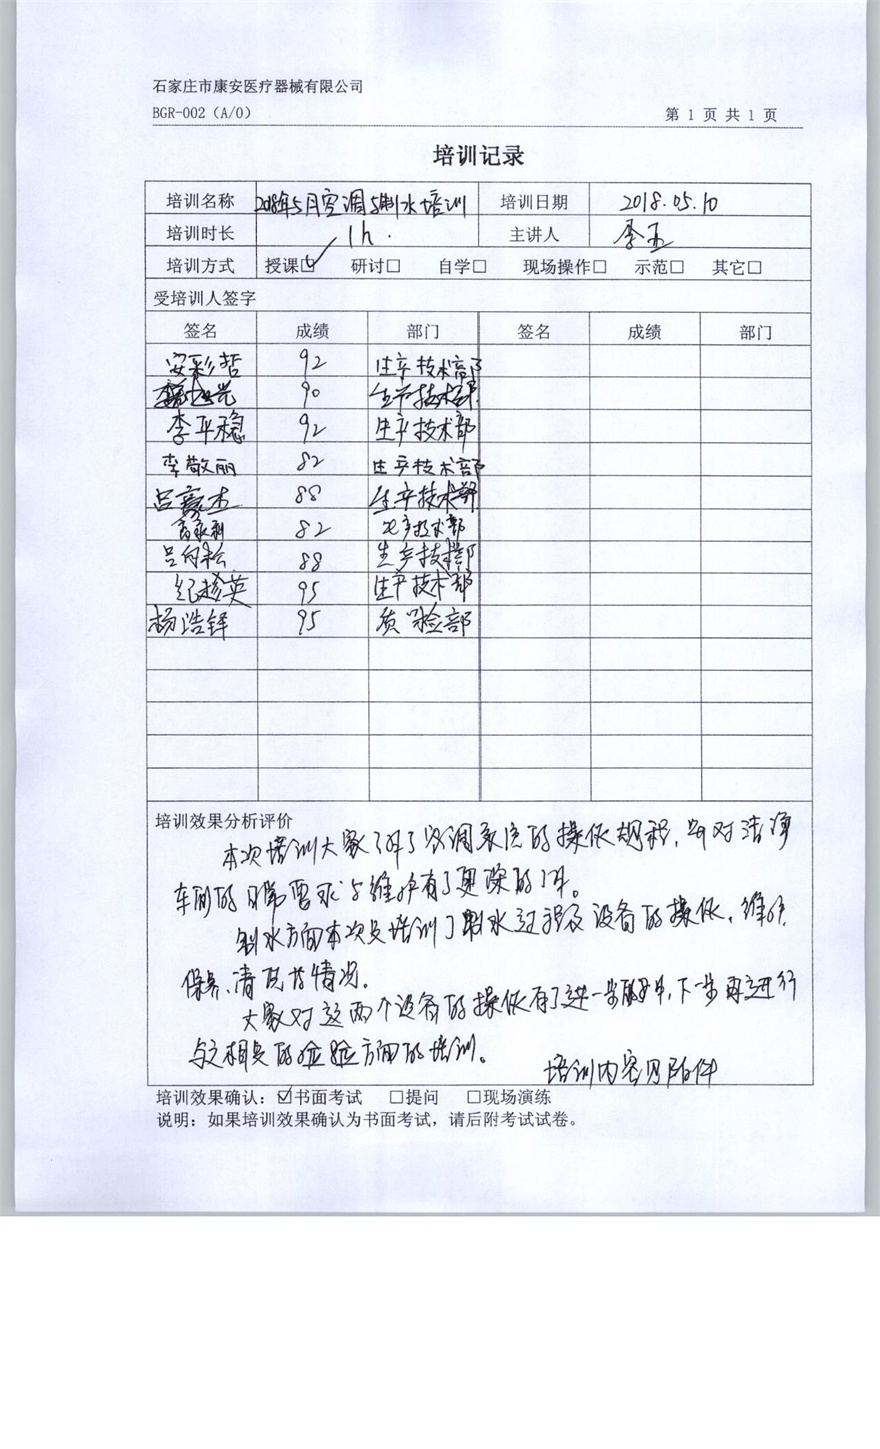 石家庄市康安医疗器械有限公司
BGR-002（A/0） 第 1 页 共 1 页
培训记录
培训名称 2018年5月空调与制水培训 培训日期 2018.05.10
培训时长 1h. 主讲人 李玉
培训方式 授课☑ 研讨□ 自学□ 现场操作□ 示范□ 其它□
受培训人签字
签名 成绩 部门 签名 成绩 部门
安彩哲 92 生产技术部
90 生产技术部
李平稳 92 生产技术部
李敬丽 82 生产技术部
吕豪杰 88 生产技术部
82 生产技术部
88 生产技术部
纪 英 95 生产技术部
杨浩铎 95 质检部
培训效果分析评价
本次培训大家了解了空调系统的操作规程，并对洁净
车间的日常要求与维护有了更深的了解。
制水方面本次是培训了制水过程及设备的操作、维护、
保养、清洗等情况。
大家对这两个设备的操作有了进一步的了解，下一步再进行
与之相关的检验方面的培训。
培训内容见附件
培训效果确认：☑书面考试 □提问 □现场演练
说明：如果培训效果确认为书面考试，请后附考试试卷。